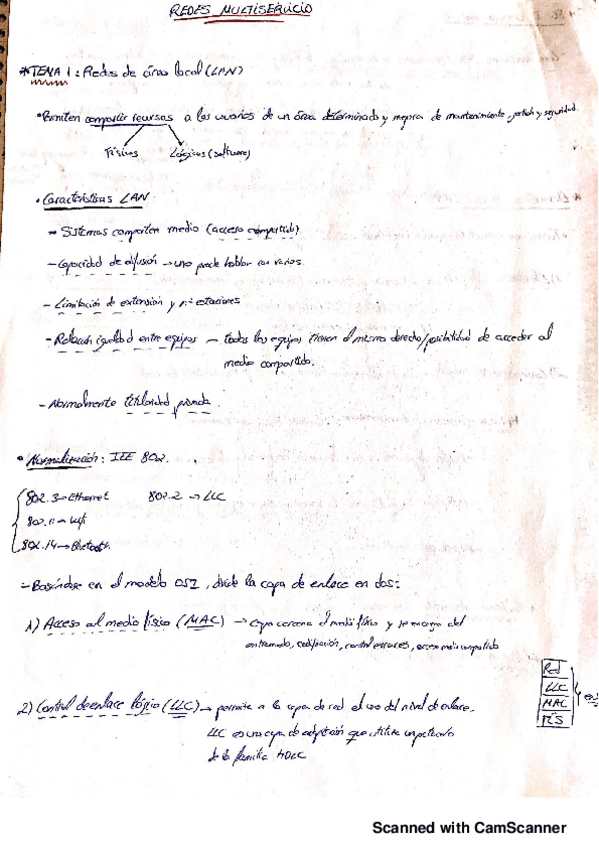 REDES MULTISERVICIO
*TEMA 1: Redes de área local (LAN)
• Permiten compartir recursos a los usuarios de un área determinada y mejora de mantenimiento, y seguridad.
Físicos Lógicos (software)
• Características LAN
- Sistemas comparten medio (acceso compartido)
- Capacidad de difusión → uno puede hablar con varios.
- Limitación de extensión y nº estaciones
- Relación igualdad entre equipos - todos los equipos tienen el mismo derecho/posibilidad de acceder al
medio compartido.
- Normalmente titularidad privada
• Normalización: IEE 802.
802.3→Ethernet 802.2 → LLC
802.11→ Wifi
802.14→Bluetooth
- Basándose en el modelo OSI, divide la capa de enlace en dos:
1) Acceso al medio físico (MAC) → Capa cercana al medio físico y se encarga del
entramado, codificación, control errores, acceso medio compartido
2) Control de enlace lógico (LLC) → permite a la capa de red el uso del nivel de enlace.
LLC es una capa de adaptación que utiliza un protocolo
de la familia HDLC
Red
LLC
MAC
FIS
Scanned with CamScanner